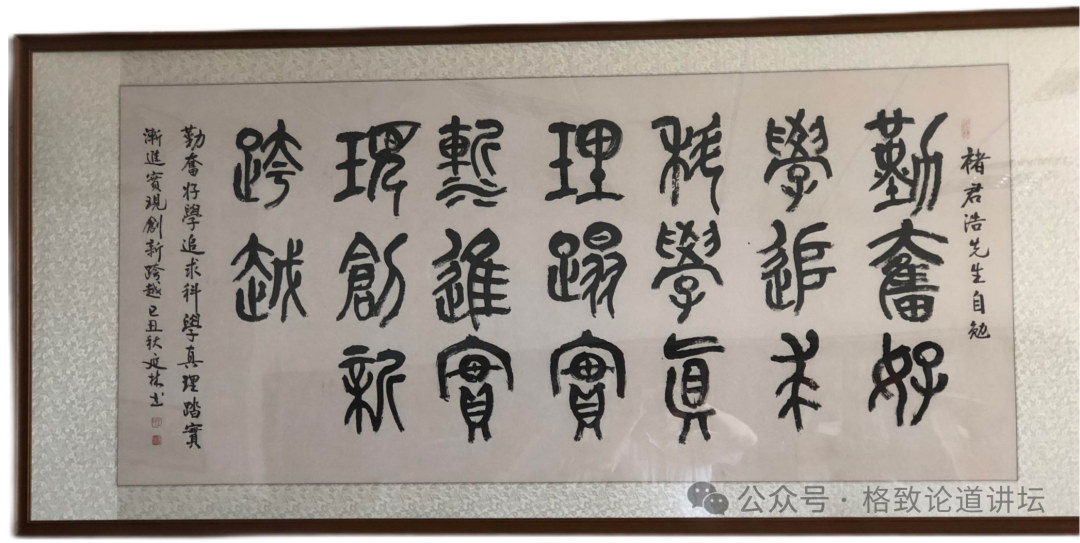 褚君浩先生自勉
勤奮好
學追求
科學真
理蹋實
漸進實
現創新
跨越
勤奮好學追求科學真理踏實
漸進實現創新跨越己丑秋延林书
公众号·格致论道讲坛